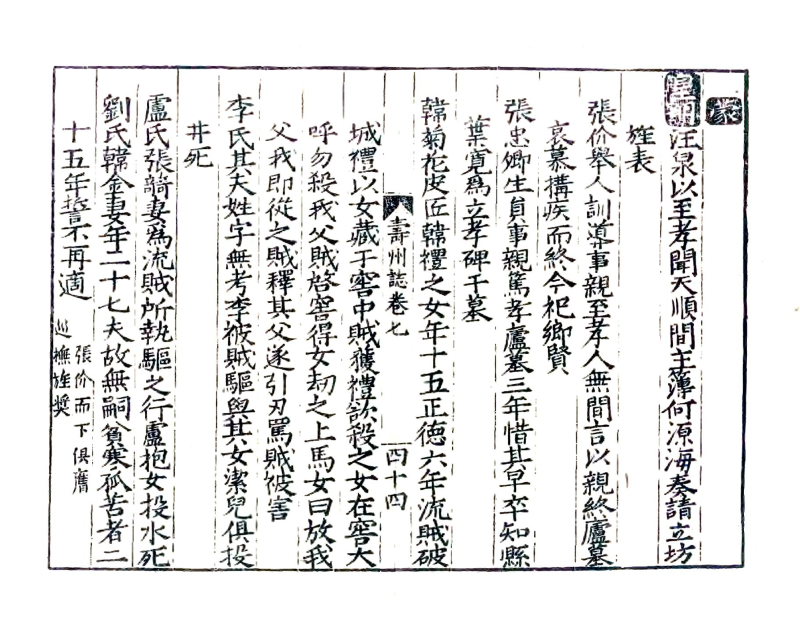 蒙
皇明 汪泉以至孝聞天順間主簿何源海奏請立坊
旌表
張价舉人訓導事親至孝人無間言以親終廬墓
哀慕搆疾而終今祀鄉賢
張忠卿生員事親篤孝廬墓三年惜其早卒知縣
葉寛爲立孝碑于墓
韓菊花皮匠韓禮之女年十五正德六年流賊破
壽州誌卷七 四十四
城禮以女藏于窖中賊獲禮欲殺之女在窖大
呼勿殺我父賊啓窖得女刼之上馬女曰放我
父我即從之賊釋其父遂引刃罵賊被害
李氏其夫姓字無考李被賊驅與其女潔兒俱投
井死
盧氏張騎妻爲流賊所執驅之行盧抱女投水死
劉氏韓金妻年二十七夫故無嗣貧寒孤苦者二
十五年誓不再適 張价而下俱膺
巡撫旌奬